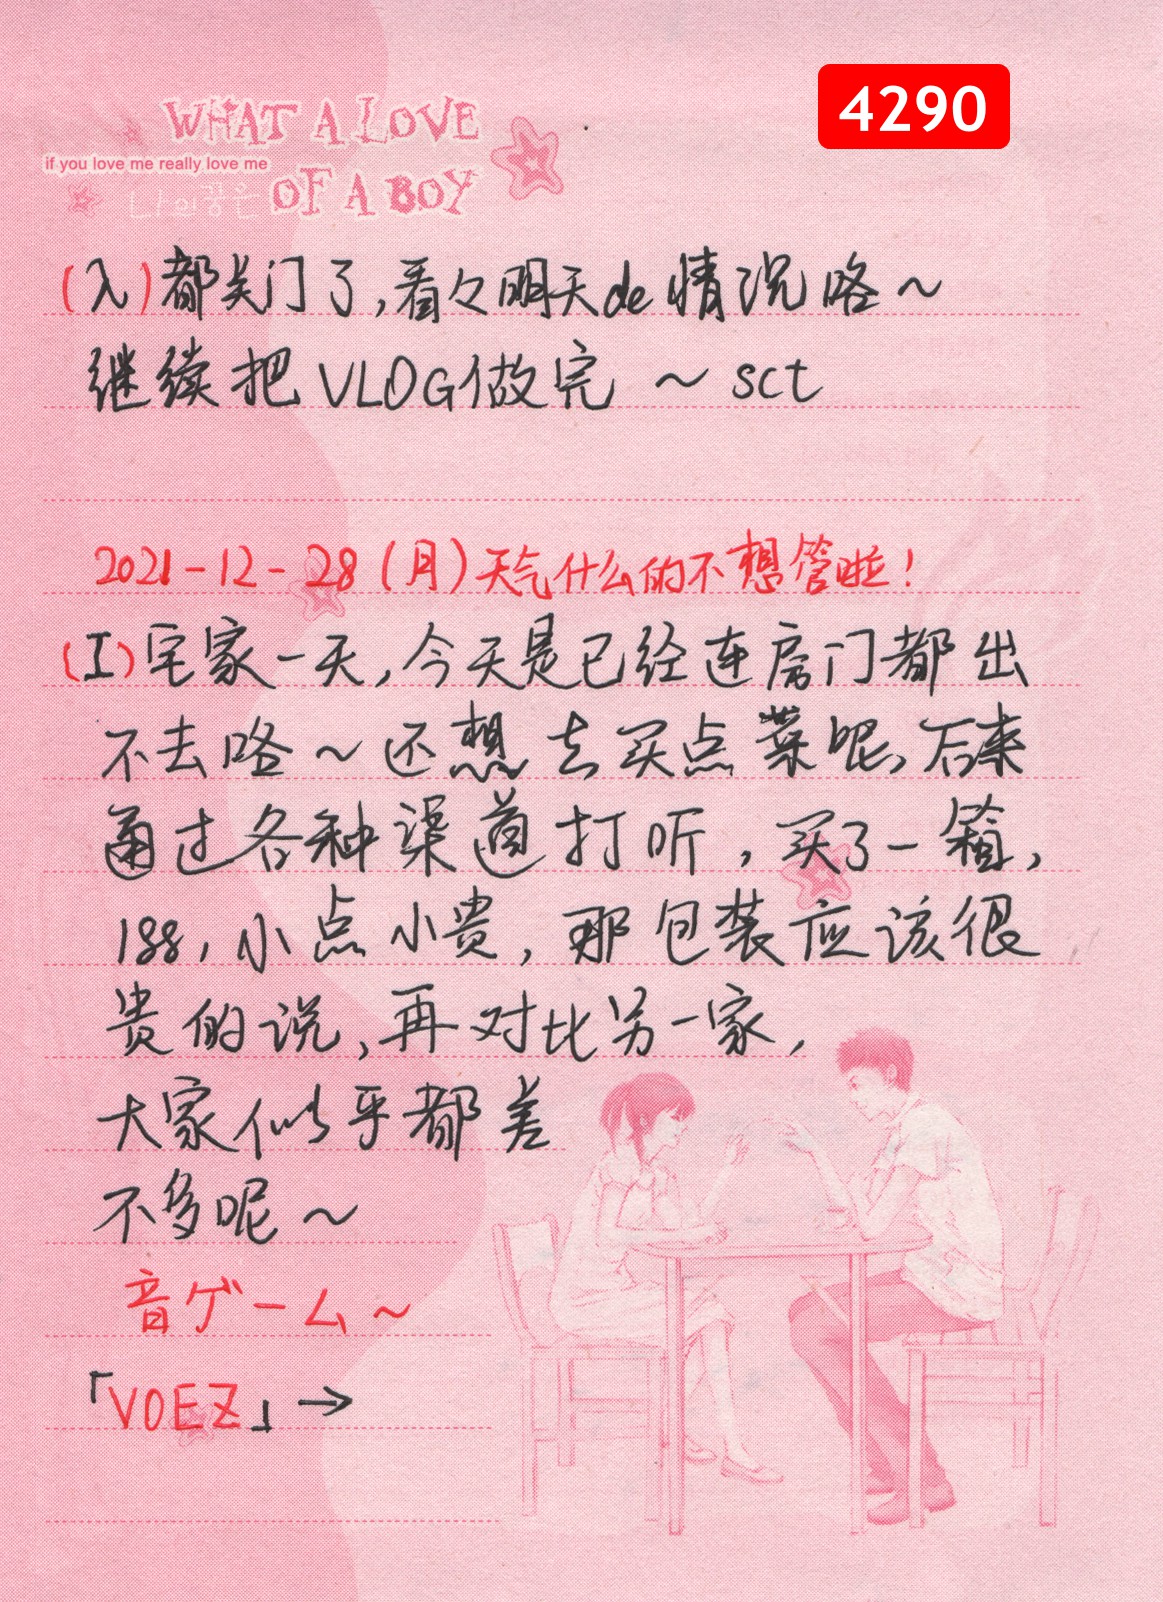 4290
WHAT A LOVE
if you love me really love me
나의꿈은 OF A BOY
(入)都关门了,看々明天de情况咯~
继续把VLOG做完 ~ sct
2021-12-28(月)天气什么的不想管啦!
(I)宅家一天,今天是已经连房门都出
不去咯~还想去买点菜呢,后来
通过各种渠道打听,买了一箱,
188,小点小贵,那包装应该很
贵的说,再对比另一家,
大家似乎都差
不多呢~
音ゲーム~
「VOEZ」→